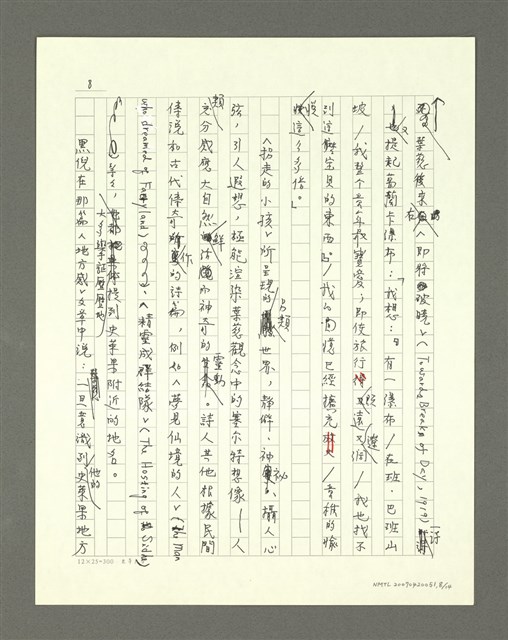 8
葉慈後來在〈即將破曉〉(Towards Break of Day, 1919)一詩
又提起葛蘭卡瀑布：「我想：『有一瀑布/在班·巴班山
坡/我整個童年最寶愛；即使旅行又遠又/我也找不
到這麼寶貝的東西。』/我的記憶已經擴充/童稚的愉
悅這麼多倍。」
〈拐走的小孩〉所呈現的另類世界，靜僻、神祕、攝人心
弦，引人遐想，極能渲染葉慈觀念中的塞爾特想像——人
類充分感應大自然鮮活而神奇的靈動。詩人其他根據民間
傳說和古代傳奇所作的詩篇，例如〈夢見仙境的人〉(The Man
who dreamed of Faeryland)、〈精靈成群結隊〉(The Hosting of the Sidhe)
等等，大多提到史萊果附近的地名。
黑倪在那篇〈地方感〉文章中說：一旦意識到史萊果地方
12×25=300
NMTL 20070420051, 8/10